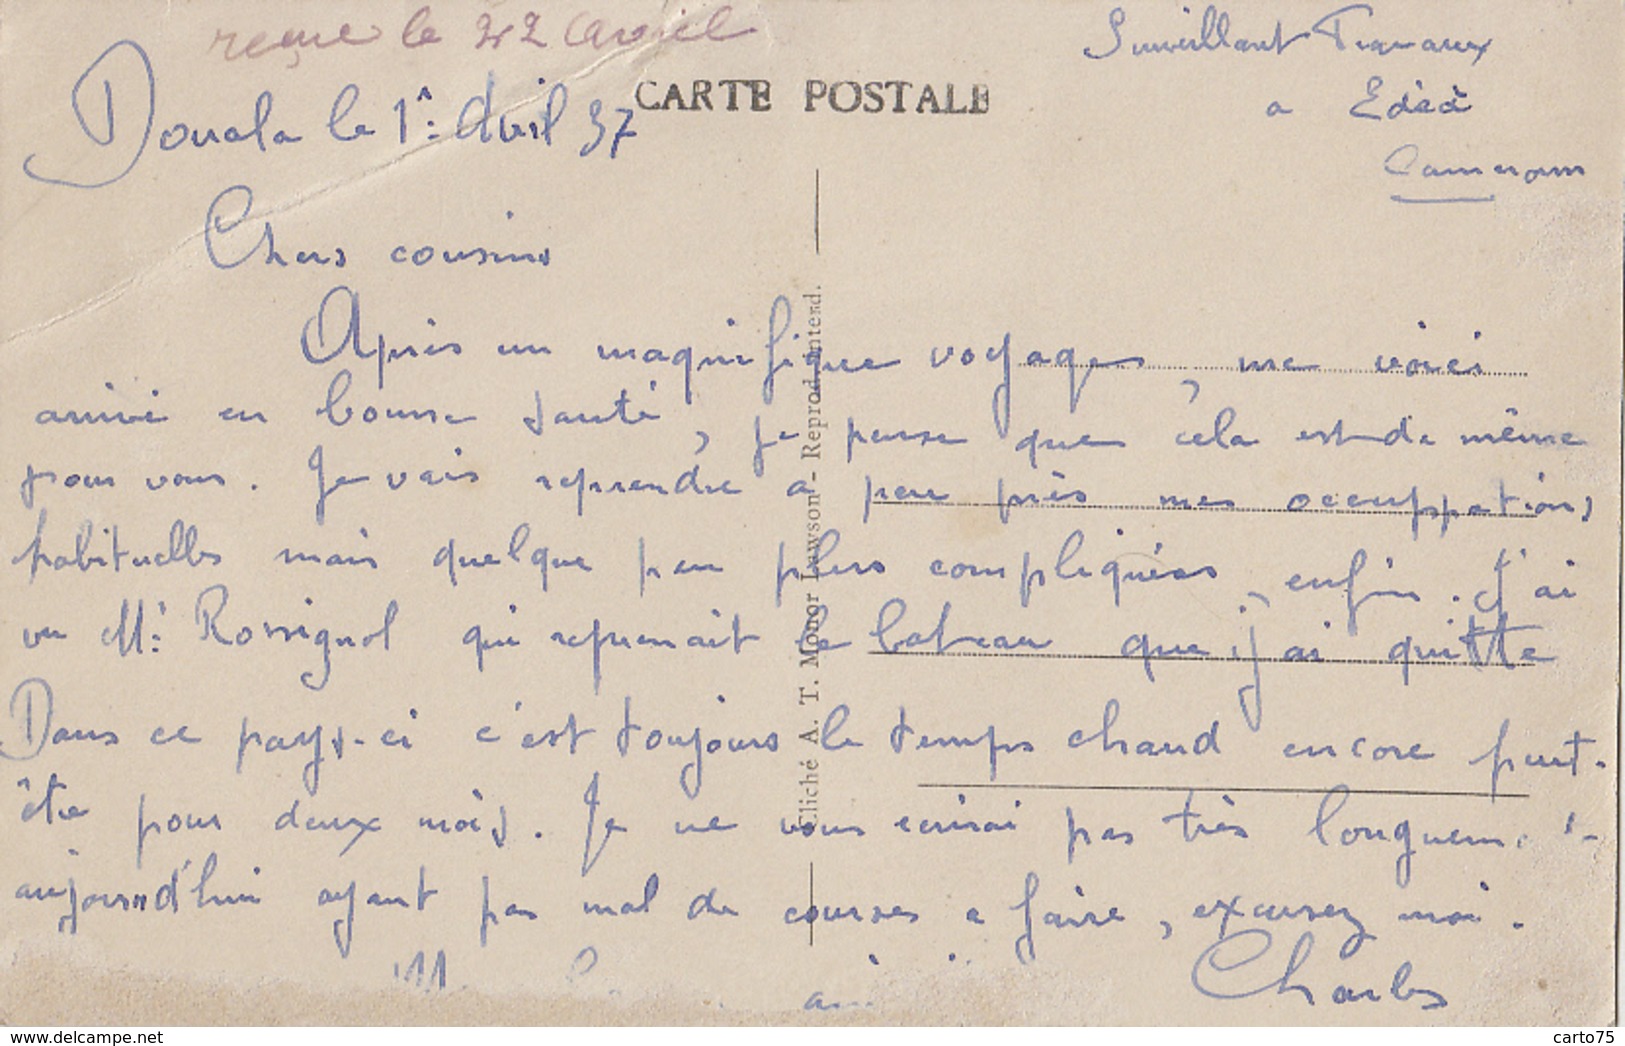 reçue le 22 avril
Surveillant Travaux
a Edéa
Cameroun
CARTE POSTALE
Douala le 1er Avril 37
Chers cousins
Après un maquifique voyages, me voici
arrivé en bonne santé, je pense que cela est de même
pour vous. Je vais reprendre a peu près mes occuppations
habituelles mais quelque peu plus compliquées, enfin. J'ai
vu Mr Rossignol qui reprenait le bateau que j'ai quitte
Dans ce pays-ci c'est toujours le temps chaud encore peut-
être pour deux mois. Je ne vous écrirai pas très
aujourd'hui ayant pas mal de courses a faire, excusez moi.
Charles
Cliché A. T. Monor Lawson - Reprod. intend.
www.delcampe.net
carto75